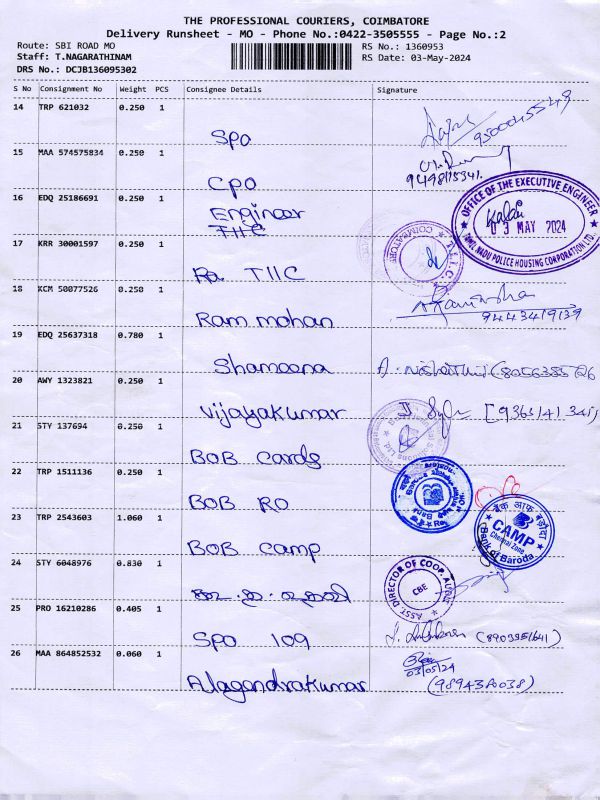 THE PROFESSIONAL COURIERS, COIMBATORE
Delivery Runsheet - MO - Phone No.:0422-3505555 - Page No.:2
Route: SBI ROAD MO
RS No.: 1360953
Staff: T.NAGARATHINAM
RS Date: 03-May-2024
DRS No.: DCJB136095302
S No Consignment No Weight PCS Consignee Details Signature
14 TRP 621032 0.250 1
SPO
9500045549
15 MAA 574575834 0.250 1
CPO
9498115341.
16 EDQ 25186691 0.250 1
Engineer
TIIC
OFFICE OF THE EXECUTIVE ENGINEER
03 MAY 2024
TAMIL NADU POLICE HOUSING CORPORATION LTD.
17 KRR 30001597 0.250 1
TIIC
COIMBATORE
T.I.I.C.
18 KCM 50077526 0.250 1
Ram mohan
9443419139
19 EDQ 25637318 0.780 1
Shameena
20 AWY 1323821 0.250 1
Vijayakumar
21 STY 137694 0.250 1
BOB Cards
22 TRP 1511136 0.250 1
BOB RO
23 TRP 2543603 1.060 1
BOB Camp
बैंक ऑफ़ बड़ौदा
CAMP
Chennai Zone
Bank of Baroda
24 STY 6048976 0.830 1
ASST DIRECTOR OF COOP. AUDIT
CBE
25 PRO 16210286 0.405 1
SPO 109
26 MAA 864852532 0.060 1
Alagendrakumar
03/05/24